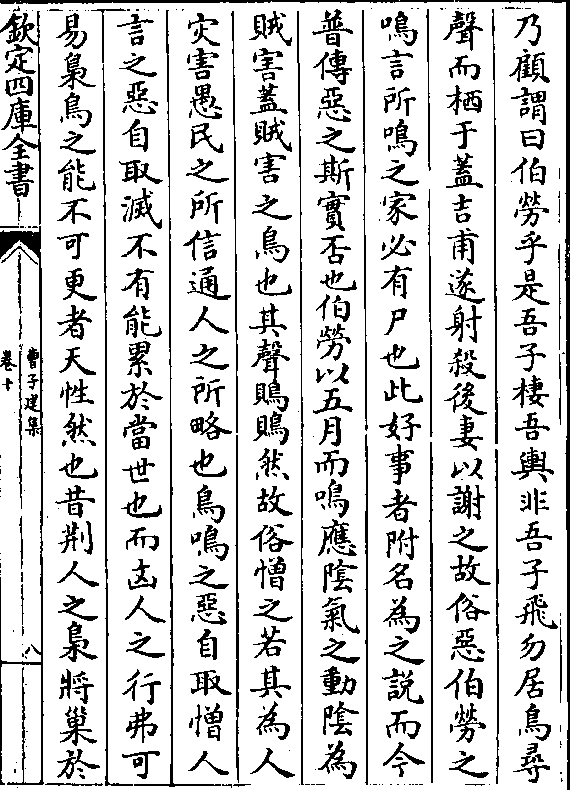 乃顧謂曰伯勞乎是吾子棲吾輿非吾子飛勿居鳥尋
聲而栖于蓋吉甫遂射殺後妻以謝之故俗惡伯勞之
鳴言所鳴之家必有尸也此好事者附名為之說而今
普傳惡之斯實否也伯勞以五月而鳴應陰氣之動陰為
賊害蓋賊害之鳥也其聲鵙鵙然故俗憎之若其為人
灾害愚民之所信通人之所略也鳥鳴之惡自取憎人
言之惡自取滅不有能累於當世也而凶人之行弗可
易梟鳥之能不可更者天性然也昔荆人之梟將巢於
欽定四庫全書
曹子建集
卷十
八